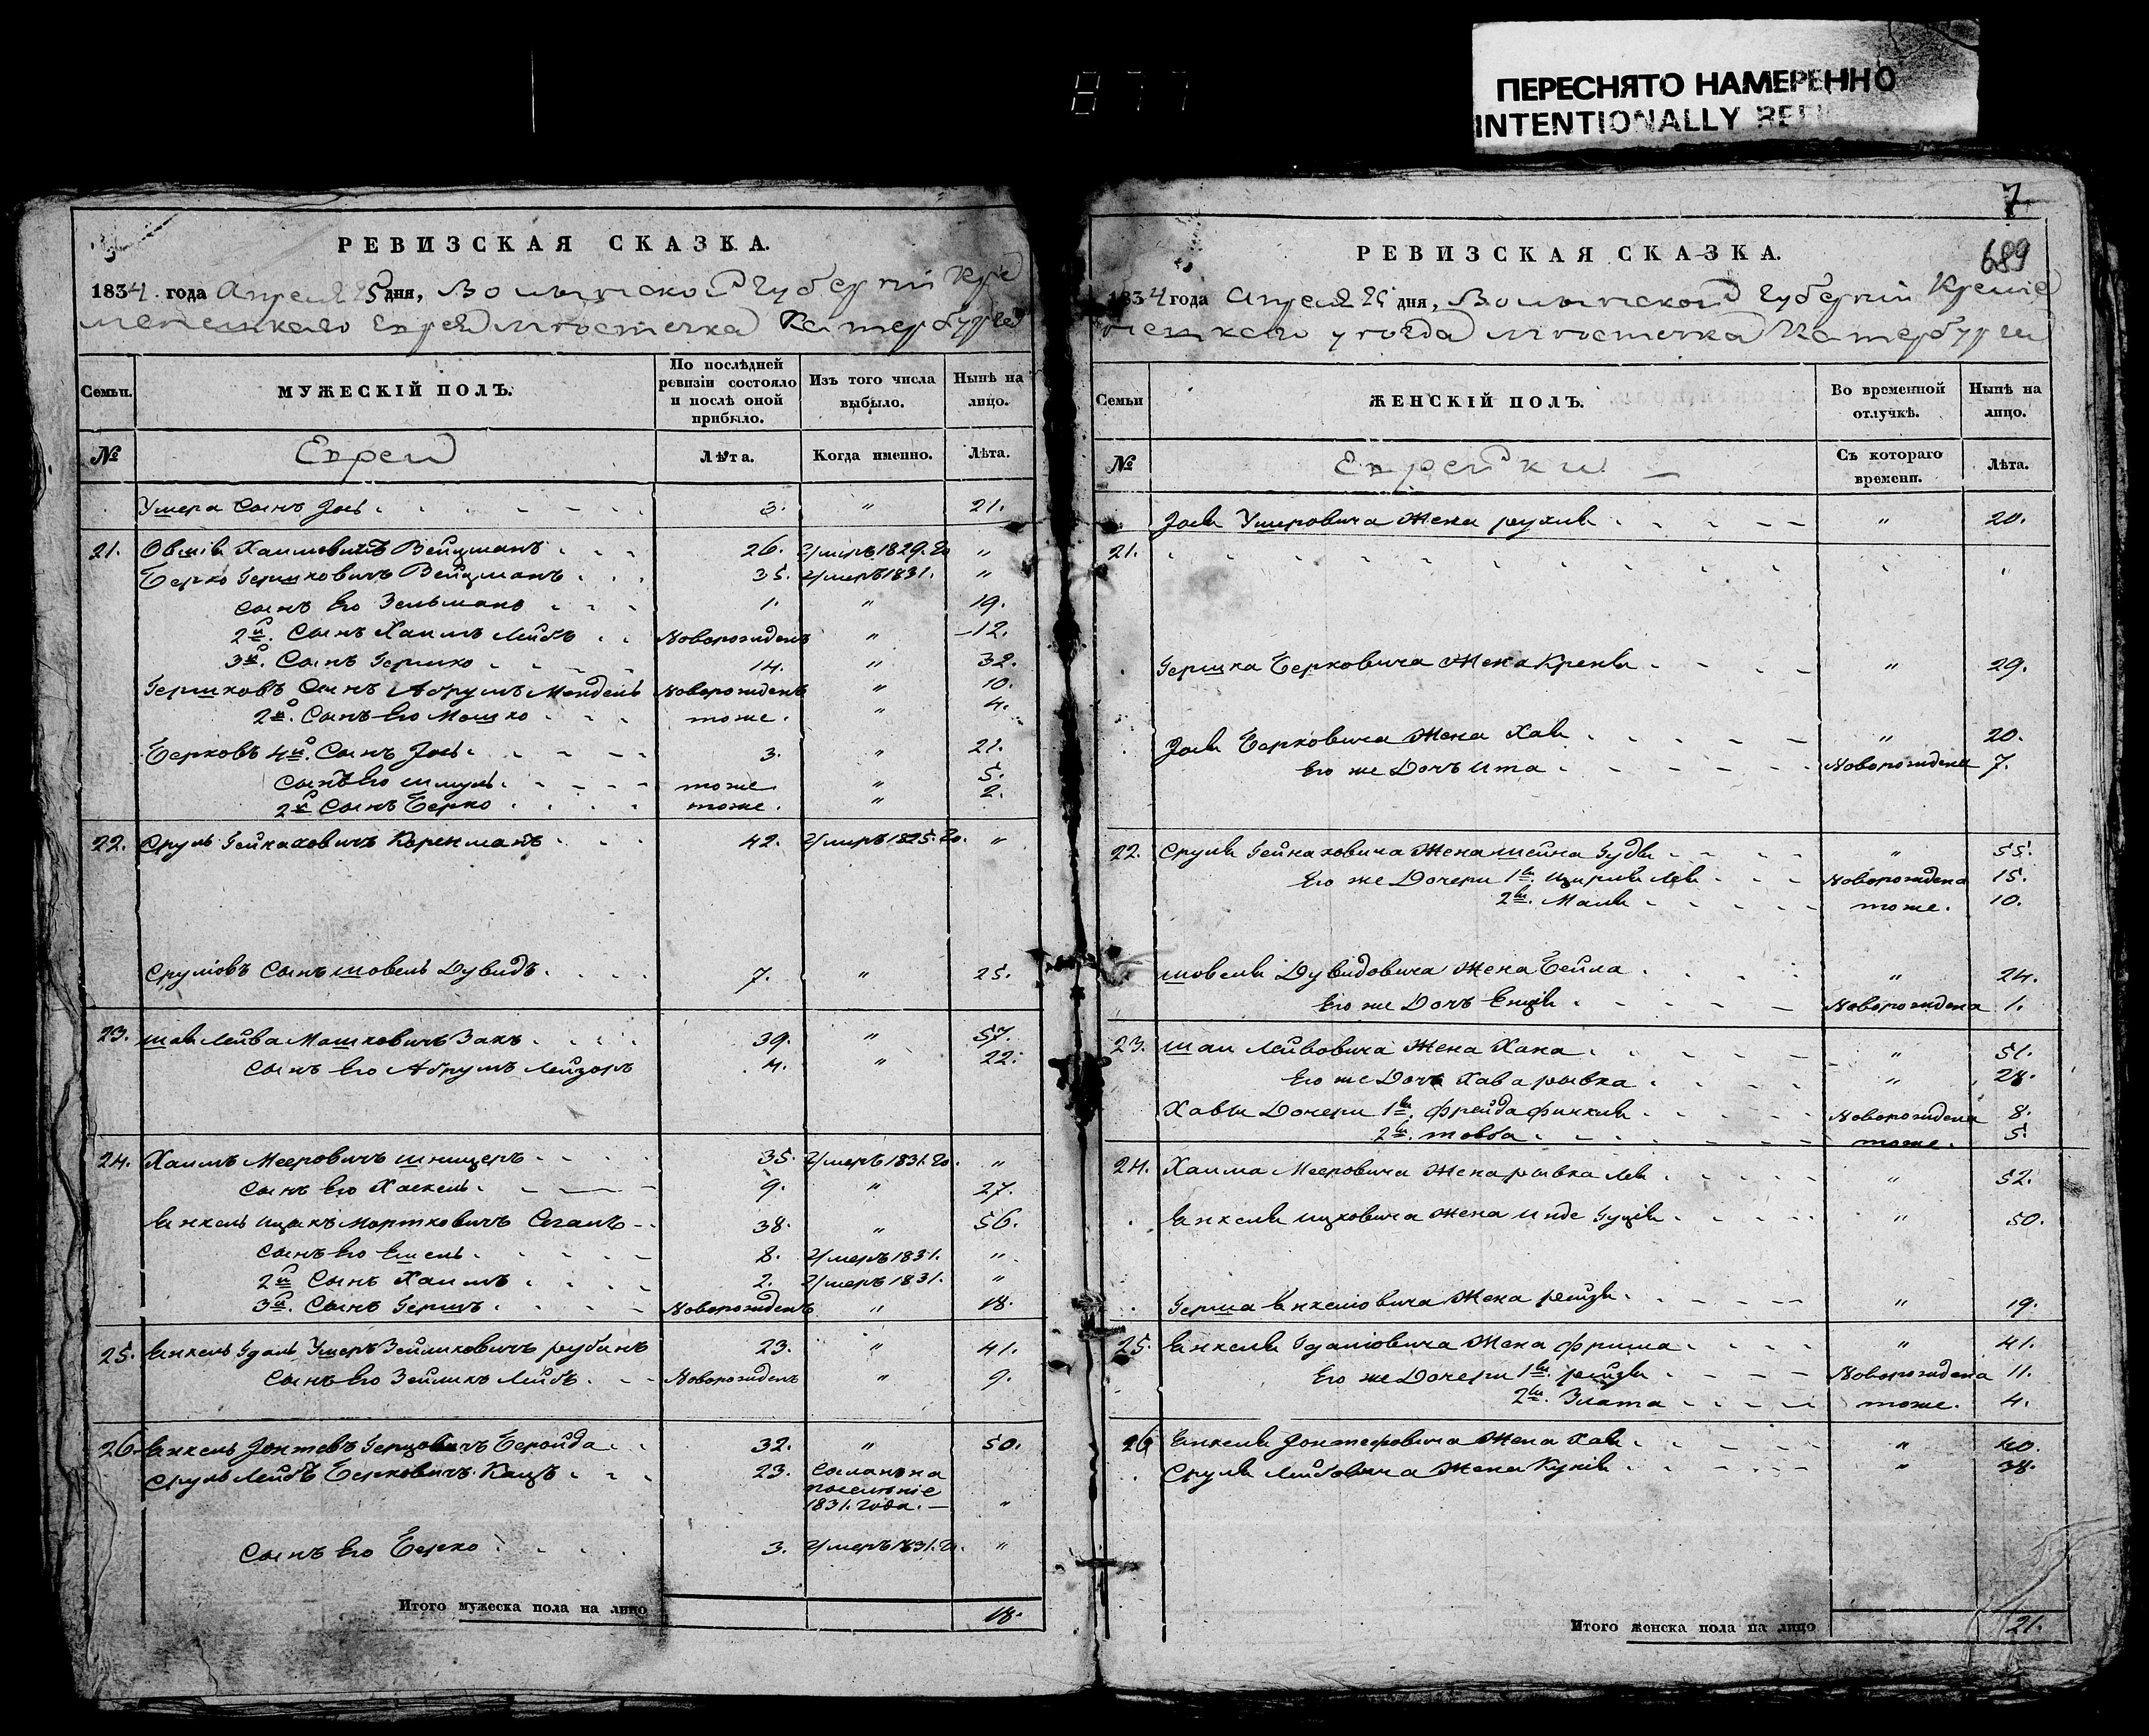 877
ПЕРЕСНЯТО НАМЕРЕННО
INTENTIONALLY
РЕВИЗСКАЯ СКАЗКА.
1834 года Апреля 25 дня, Волынской Губерніи Кре
менецкаго Еврей местечка Катербурга
Семьи.
МУЖЕСКІЙ ПОЛЪ.
По послѣдней ревизіи состояло и послѣ оной прибыло.
Изъ того числа выбыло.
Нынѣ на лицо.
№
Евреи
Лѣта.
Когда именно.
Лѣта.
Умера Сынъ Іось 3. " 21.
21. Овшія Хаимовичъ Вейцманъ 26. Умеръ 1829. го "
Берко Гершковичъ Вейцманъ 35. Умеръ 1831. "
Сынъ Его Зельманъ 1. " 19.
2й. Сынъ Хаимъ Лейбъ Новорожденъ " 12.
3й. Сынъ Гершко 14. " 32.
Гершковъ Сынъ Абрумъ Мендель Новорожденъ " 10.
2й. Сынъ Его Мошко тоже. " 4.
Берковъ 4й. Сынъ Іось 3. " 21.
Сынъ Его Шмуль тоже " 5.
2й Сынъ Берко тоже. " 2.
22. Сруль Гейнаховичъ Коренманъ 42. Умеръ 1825. го. "
Срулювъ Сынъ Шовель Дувидъ 7. " 25.
23. Шая Лейва Машковичъ Закъ 39. " 57.
Сынъ Его Абрумъ Лейзоръ 4. " 22.
24. Хаимъ Мееровичъ Шницеръ 35. Умеръ 1831. го. "
Сынъ Его Хаскель 9. " 27.
Янкель Ицыкъ Мортковичъ Сеганъ 38. " 56.
Сынъ Его Ешель 8. Умеръ 1831. "
2й Сынъ Хаимъ 2. Умеръ 1831. "
3й. Сынъ Гершъ Новорожденъ " 18.
25. Янкель Гдаль Умеръ Зейликовичъ Рубинъ 23. " 41.
Сынъ Его Зейликъ Лейбъ Новорожденъ " 9.
26. Янкель Іонтевъ Герцовичъ Беройда 32. " 50.
Сруль Лейбъ Берковичъ Кацъ 23. Сосланъ на
поселеніе
1831. Года. "
Сынъ Его Берко 3. Умеръ 1831. го. "
Итого мужеска пола на лицо 18.
7
689
РЕВИЗСКАЯ СКАЗКА.
1834 года Апреля 25 дня, Волынской Губерніи Креме
нецкаго уезда местечка Катербурга
Семьи
ЖЕНСКІЙ ПОЛЪ.
Во временной отлучкѣ.
Нынѣ на лицо.
№
Еврейки
Съ котораго времени.
Лѣта.
Іося Умеровича Жена Рухля " 20.
21.
Гершка Берковича Жена Креня " 29.
Іося Берковича Жена Хая " 20.
Его же Дочь Ита Новорождена 7.
22. Сруля Гейнаховича Жена Шейна Гудя " 55.
Его же Дочери 1я. Цирля Лея Новорождена 15.
2я. Маля тоже. 10.
Шовеля Дувидовича Жена Бейла " 24.
Его же Дочь Енця Новорождена 1.
23. Шаи Лейвовича Жена Хана " 51.
Его же Дочь Хава Рывка " 28.
Хавы Дочери 1я. Фрейда Финкля Новорождена 8.
2я. Товба тоже. 5.
24. Хаима Мееровича Жена Рывка Лея " 52.
Янкеля Ицковича Жена Инде Гуція " 50.
Герша Янкелювича Жена Рейзя " 19.
25. Янкеля Гдалювича Жена Фрима " 41.
Его же Дочери 1я. Рейзя Новорождена 11.
2я. Злата тоже. 4.
26 Янкеля Іонтефовича Жена Хая " 40.
Сруля Лейбовича Жена Куня " 38.
Итого женска пола на лицо 21.